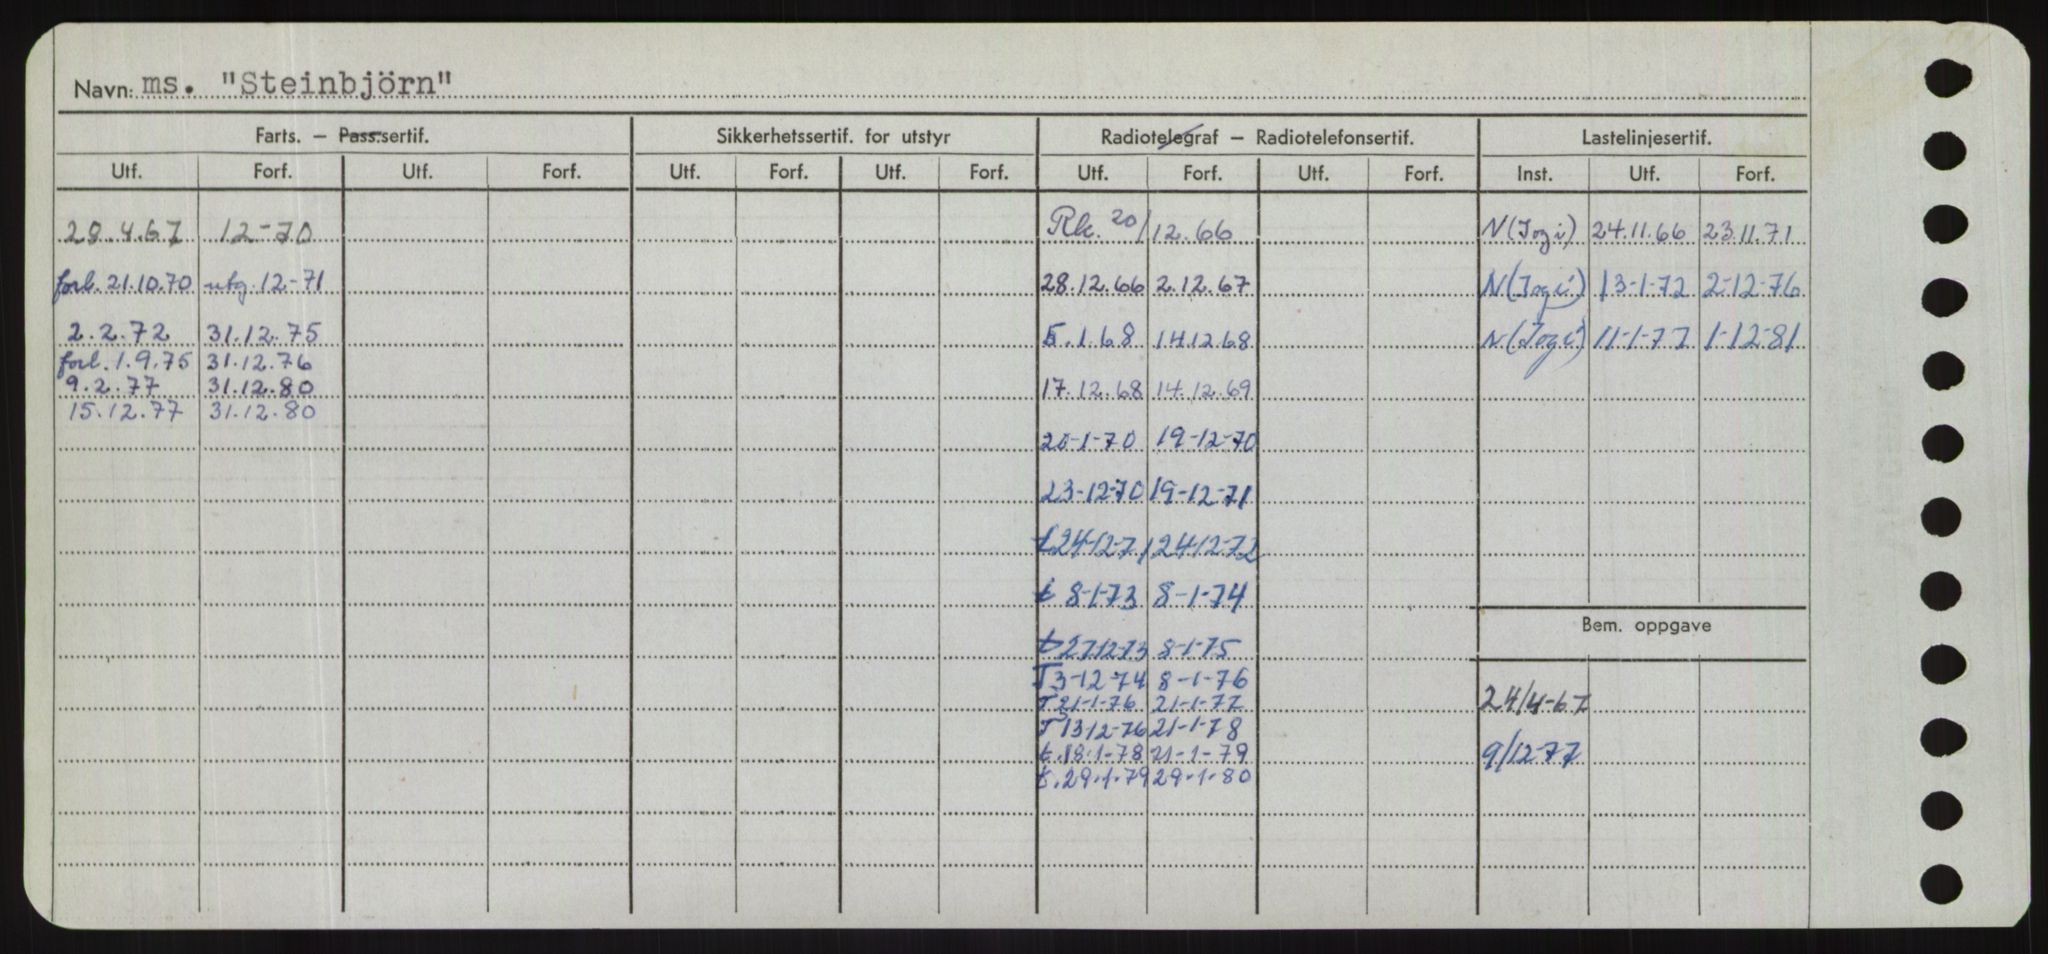 Navn: ms. "Steinbjörn"
Farts. — Pass.sertif. Sikkerhetssertif. for utstyr Radiotelegraf — Radiotelefonsertif. Lastelinjesertif.
Utf. Forf. Utf. Forf. Utf. Forf. Utf. Forf. Utf. Forf. Utf. Forf. Inst. Utf. Forf.
28.4.67 12-70 Rk. 20/12.66 N(Jogi) 24.11.66 23.11.71
forl. 21.10.70 utg. 12-71 28.12.66 2.12.67 N(Jogi) 13-1-72 2-12-76
2.2.72 31.12.75 5.1.68 14.12.68 N(Jogi) 11-1-77 1-12-81
forl. 1.9.75 31.12.76
9.2.77 31.12.80 17.12.68 14.12.69
15.12.77 31.12.80
20-1-70 19-12-70
23-12-70 19-12-71
t 24-12-71 24-12-72
t 8-1-73 8-1-74
Bem. oppgave
t 27-12-73 8-1-75
T 3-12-74 8-1-76
T 21-1-76 21-1-77 24/4-67
T 13-12-76 21-1-78
t. 18.1-78 21-1-79 9/12-77
t. 29.1.79 29.1.80